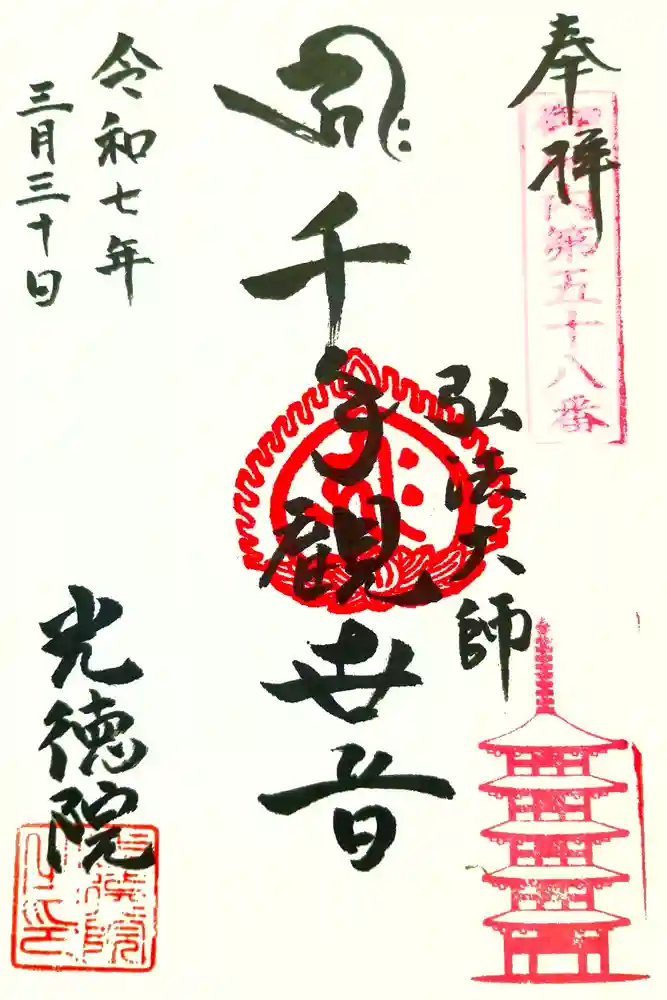 奉拝
第五十八番
弘法大師
千手観世音
令和七年
三月三十日
光徳院